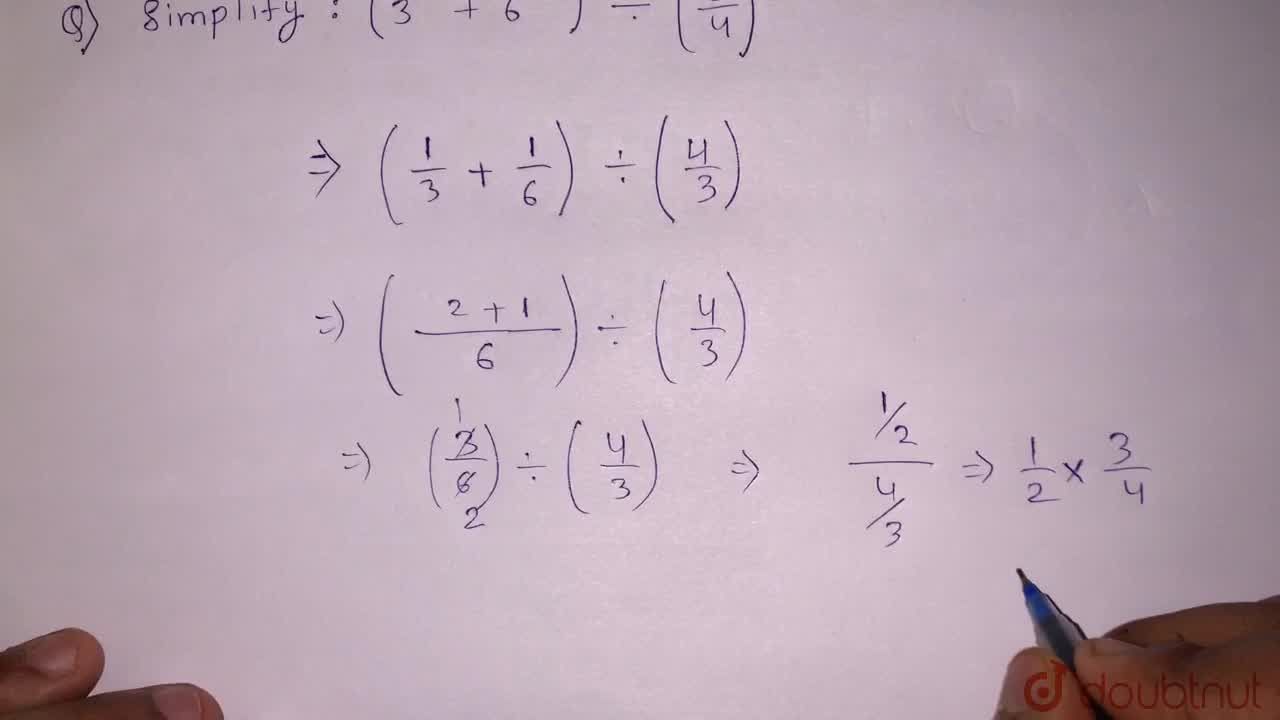 Q) Simplify : (3 + 6 ) ÷ (/4)
⇒ (1/3 + 1/6) ÷ (4/3)
⇒ (2 + 1/6) ÷ (4/3)
⇒ (3/6) 1 2 ÷ (4/3) ⇒ 1/2 / 4/3 ⇒ 1/2 × 3/4
doubtnut